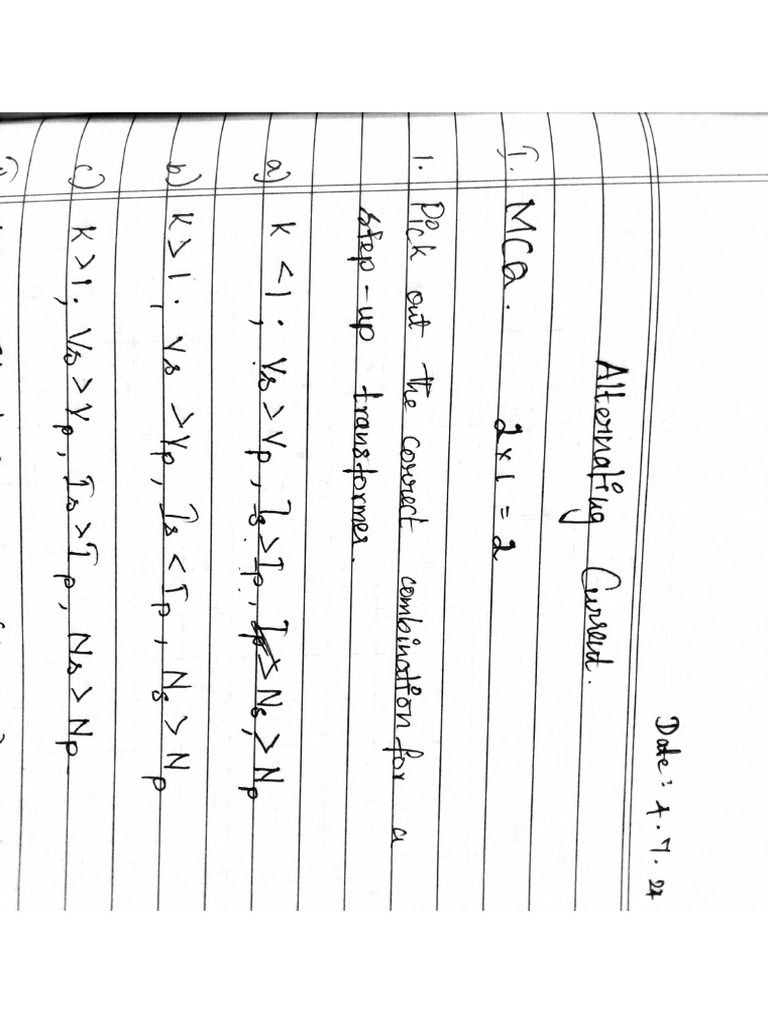 Date: 4.7.24
Alternating Current.
I. MCQ. 2×1=2
1. Pick out the correct combination for a
step-up transformer.
a) K <1, Vs > Vp, Is > Ip, Ns > Np
b) K > 1, Vs > Vp, Is < Ip, Ns > Np
c) K > 1, Vs > Vp, Is > Ip, Ns > Np